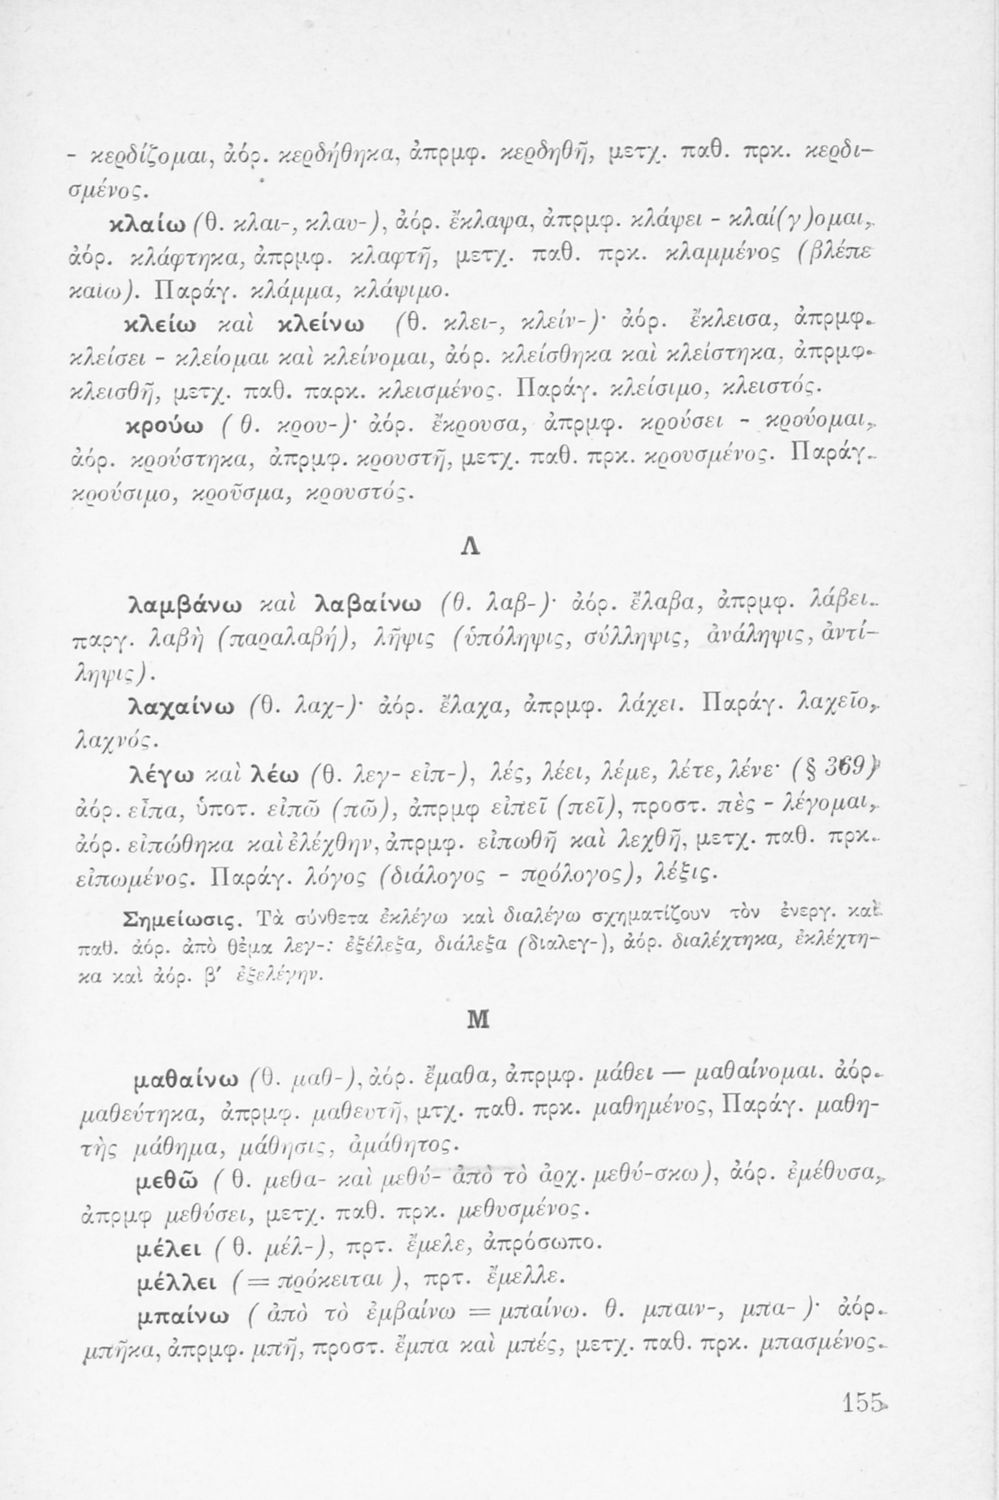 - κερδίζομαι, ἀόρ. κερδήθηκα, ἀπρμφ. κερδηθῆ, μετχ. παθ. πρκ. κερδι-
σμένος.
κλαίω (θ. κλαι-, κλαυ-), ἀόρ. ἔκλαψα, ἀπρμφ. κλάψει - κλαί(γ)ομαι,
ἀόρ. κλάφτηκα, ἀπρμφ. κλαφτῆ, μετχ. παθ. πρκ. κλαμμένος (βλέπε
καίω). Παράγ. κλάμμα, κλάψιμο.
κλείω καὶ κλείνω (θ. κλει-, κλείν-)· ἀόρ. ἔκλεισα, ἀπρμφ.
κλείσει - κλείομαι καὶ κλείνομαι, ἀόρ. κλείσθηκα καὶ κλείστηκα, ἀπρμφ.
κλεισθῆ, μετχ. παθ. παρκ. κλεισμένος. Παράγ. κλείσιμο, κλειστός.
κρούω (θ. κρου-)· ἀόρ. ἔκρουσα, ἀπρμφ. κρούσει - κρούομαι,
ἀόρ. κρούστηκα, ἀπρμφ. κρουστῆ, μετχ. παθ. πρκ. κρουσμένος. Παράγ.
κρούσιμο, κροῦσμα, κρουστός.
Λ
λαμβάνω καὶ λαβαίνω (θ. λαβ-)· ἀόρ. ἔλαβα, ἀπρμφ. λάβει.
παργ. λαβὴ (παραλαβή), λῆψις (ὑπόληψις, σύλληψις, ἀνάληψις, ἀντί-
ληψις).
λαχαίνω (θ. λαχ-)· ἀόρ. ἔλαχα, ἀπρμφ. λάχει. Παράγ. λαχεῖο,
λαχνός.
λέγω καὶ λέω (θ. λεγ- εἰπ-), λές, λέει, λέμε, λέτε, λένε· (§ 369)
ἀόρ. εἶπα, ὑποτ. εἰπῶ (πῶ), ἀπρμφ εἰπεῖ (πεῖ), προστ. πὲς - λέγομαι,
ἀόρ. εἰπώθηκα καὶ ἐλέχθην, ἀπρμφ. εἰπωθῆ καὶ λεχθῆ, μετχ. παθ. πρκ.
εἰπωμένος. Παράγ. λόγος (διάλογος - πρόλογος), λέξις.
Σημείωσις. Τὰ σύνθετα ἐκλέγω καὶ διαλέγω σχηματίζουν τὸν ἐνεργ. καὶ
παθ. ἀόρ. ἀπὸ θέμα λεγ-: ἐξέλεξα, διάλεξα (διαλεγ-), ἀόρ. διαλέχτηκα, ἐκλέχτη-
κα καὶ ἀόρ. β' ἐξελέγην.
Μ
μαθαίνω (θ. μαθ-), ἀόρ. ἔμαθα, ἀπρμφ. μάθει — μαθαίνομαι. ἀόρ.
μαθεύτηκα, ἀπρμφ. μαθευτῆ, μτχ. παθ. πρκ. μαθημένος, Παράγ. μαθη-
τὴς μάθημα, μάθησις, ἀμάθητος.
μεθῶ (θ. μεθα- καὶ μεθύ- ἀπὸ τὸ ἀρχ. μεθύ-σκω), ἀόρ. ἐμέθυσα,
ἀπρμφ μεθύσει, μετχ. παθ. πρκ. μεθυσμένος.
μέλει (θ. μέλ-), πρτ. ἔμελε, ἀπρόσωπο.
μέλλει (= πρόκειται), πρτ. ἔμελλε.
μπαίνω (ἀπὸ τὸ ἐμβαίνω = μπαίνω. θ. μπαιν-, μπα-)· ἀόρ.
μπῆκα, ἀπρμφ. μπῆ, προστ. ἔμπα καὶ μπές, μετχ. παθ. πρκ. μπασμένος.
155